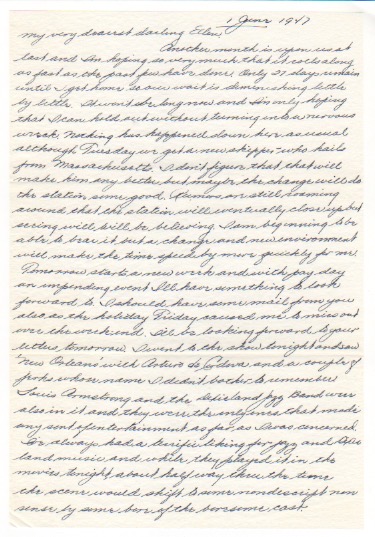 1 June 1947
My very dearest darling Ellen,
Another month is upon us at
last and I'm hoping so very much that it rolls along
as fast as the past few have done. Only 27 days remain
until I get home so our wait is diminishing little
by little. It won't be long now and I'm only hoping
that I can hold out without turning into a nervous
wreck. Nothing has happened down here as usual
although Tuesday we get a new skipper who hails
from Massachusetts. I don't figure that that will
make him any better but maybe the change will do
the station some good. Rumors are still roaming
around that the station will eventually close up but
seeing will be believing. I am beginning to be
able to bear it but a change and new environment
will make the time speed by more quickly for me.
Tomorrow starts a new week and with pay day
an impending event I'll have something to look
forward to. I should have some mail from you
also as the holiday Friday caused me to miss out
over the weekend. I'll be looking forward to your
letters tomorrow. I went to the show tonight and saw
"New Orleans" with Arturo de Cordova and a couple of
jerks whose name I didn't bother to remember.
Louis Armstrong and the Dixieland Jazz Band were
also in it and they were the only ones that made
any sort of entertainment as far as I was concerned.
I've always had a terrific liking for jazz and Dixie
land music and while they played it in the
movies tonight about half way thru the tune
the scene would shift to some nondescript non
sense by some bore of the boresome cast.